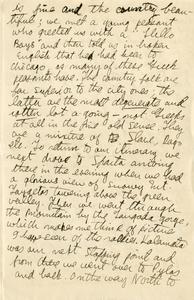 is fine and the country beau-
tiful; we met a young peasant
who greeted us with a "Hello
Boys" and then told us in broken
English that he had been to
Chicago. Many of these Greek
peasants have. The country folk are
far superior to the city ones; the
latter are the most degenerate and
rotten lot a going - not Greeks
at all in the fine old sense. They
are a mixture of Turk, Slav, Bulg-
To return to our itinerary we
next drove to Sparta arriving
there in the evening when we had
a glorious view of snowy Mt.
Taygetos towering above the green
valley. Then we went through
the mountain by the Langada gorge,
which makes me think of pictures
I have seen of the rockies. Kalamata
was our next stopping point and
from there we went over to Pylos
and back. On the way North to